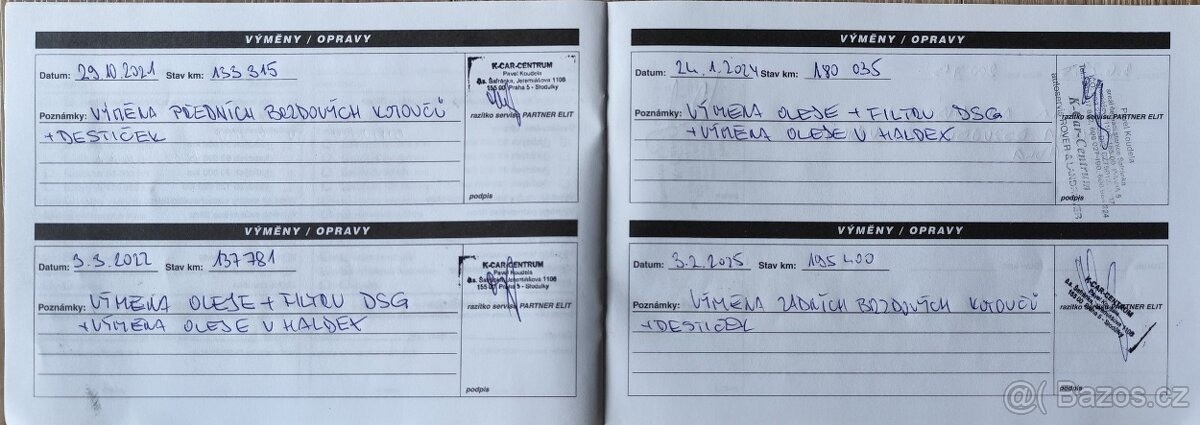 VÝMĚNY / OPRAVY
Datum: 29.10.2021 Stav km: 133 315
K-CAR-CENTRUM
Pavel Koudela
ná. Šafránka, Jeremiášova 1106
155 00 Praha 5 - Stodůlky
razítko servisu PARTNER ELIT
Poznámky: VÝMĚNA PŘEDNÍCH BRZDOVÝCH KOTOUČŮ
+ DESTIČEK
podpis
VÝMĚNY / OPRAVY
Datum: 3.3.2022 Stav km: 137 781
K-CAR-CENTRUM
Pavel Koudela
155 00 Praha 5 - Stodůlky
razítko servisu PARTNER ELIT
Poznámky: VÝMĚNA OLEJE + FILTRU DSG
+ VÝMĚNA OLEJE V HALDEX
podpis
VÝMĚNY / OPRAVY
Datum: 24.1.2024 Stav km: 180 035
Pavel Koudela
K-Car-Centrum
autoservis ROVER & LAND
razítko servisu PARTNER ELIT
Poznámky: VÝMĚNA OLEJE + FILTRU DSG
+ VÝMĚNA OLEJE V HALDEX
podpis
VÝMĚNY / OPRAVY
Datum: 3.2.2025 Stav km: 195 400
K-CAR-CENTRUM
155 00 Praha 5 - Stodůlky
razítko servisu PARTNER ELIT
Poznámky: VÝMĚNA ZADNÍCH BRZDOVÝCH KOTOUČŮ
+ DESTIČEK
podpis
Bazos.cz